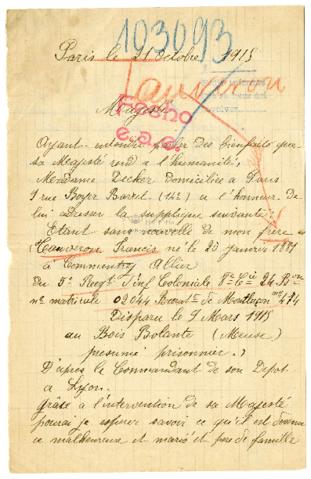 103093
Paris le 21 Octobre 1915
Lauveron
Majesté
Fecho
e.a.c.
Ayant entendu parler des bienfaits que
sa Majesté rend a l'humanité,
Madame Decker Domiciliée a Paris
1 rue Boyer Barret (14e) a l'honneur de
lui adresser la supplique suivante:
Etant sans nouvelle de mon frère
Francis né le 20 janvier 1881
à Commentry Allier
du 5e Regt d'Inf Coloniale 8e Cie 24 Bon
no matricule 02044 de Montluçon no 474
Disparu le 9 Mars 1915
au Bois Bolante (Meuse)
présumé prisonnier.)
D'après le Commandant de son Dépot
a Lyon.
Grâce a l'intervention de sa Majesté
pourai je esperer savoir ce qu'il est devenu
ce malheureux et marié et père de famille